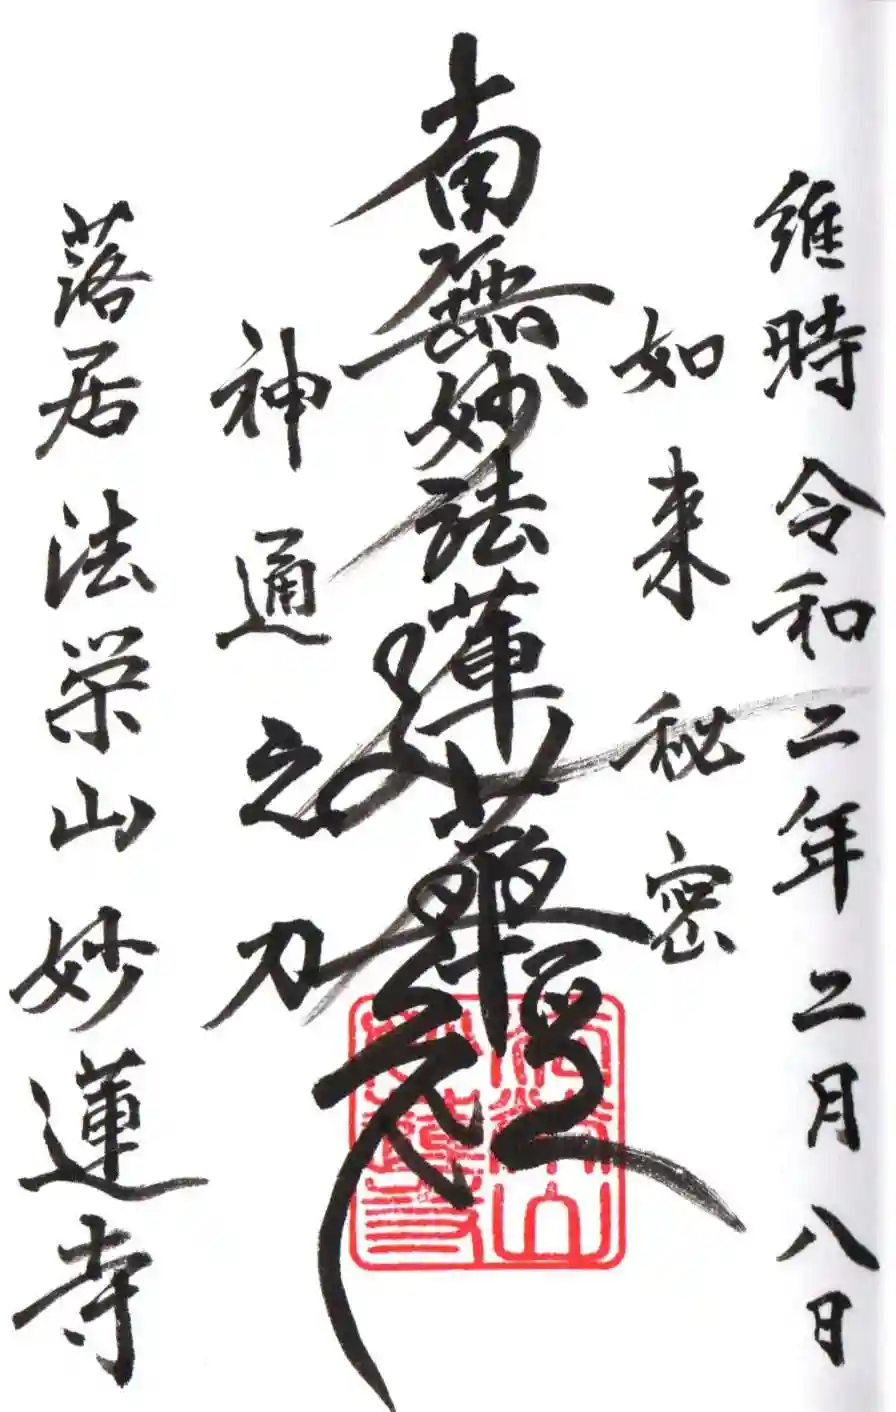 維時令和二年二月八日
如来秘密
南無妙法蓮華経
神通之力
落居法栄山妙蓮寺
法栄山
妙蓮寺